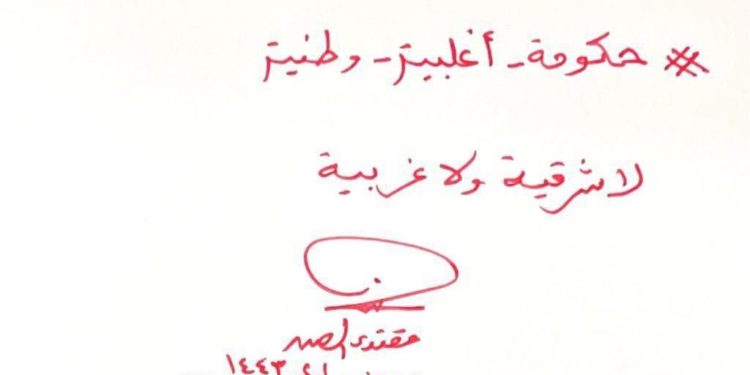 # حكومة - أغلبية - وطنية
لا شرقية ولا غربية
مقتدى الصدر
١٤٤٣